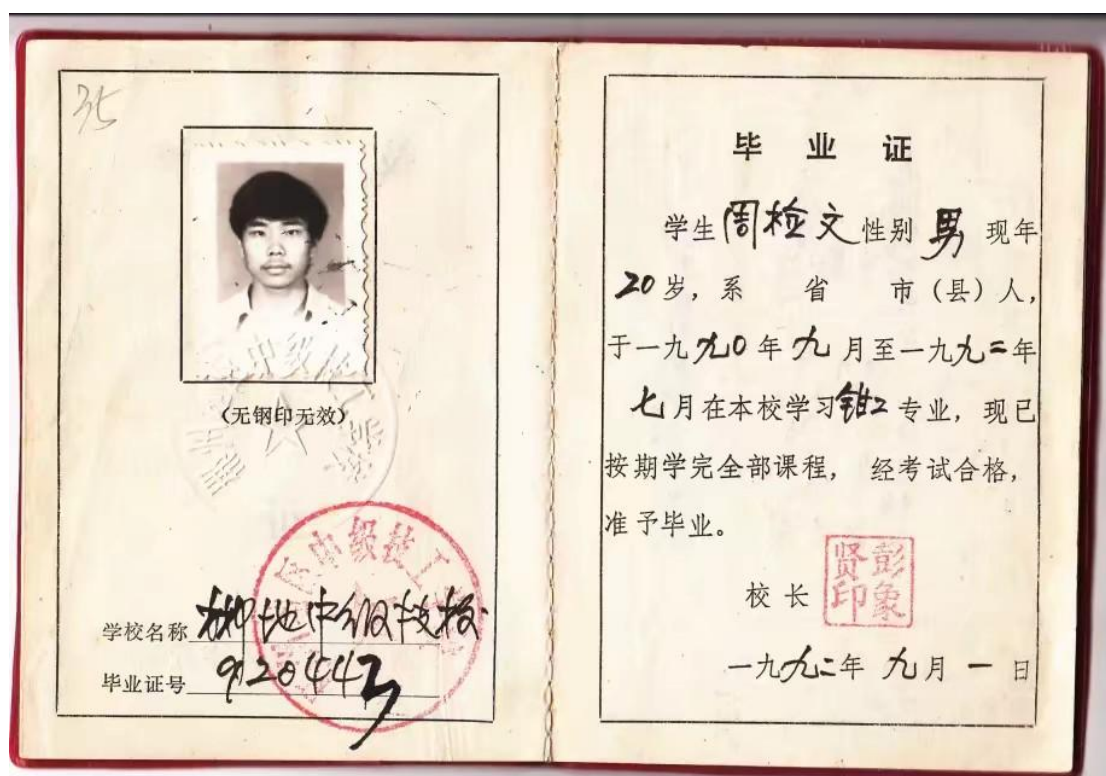 35
(无钢印无效)
学校名称 郴地中级技校
毕业证号 920443
毕业证
学生周检文性别男现年
20岁，系 省 市（县）人，
于一九九0年九月至一九九二年
七月在本校学习钳工专业，现已
按期学完全部课程，经考试合格，
准予毕业。
校长 彭象贤印
一九九二年九月一日